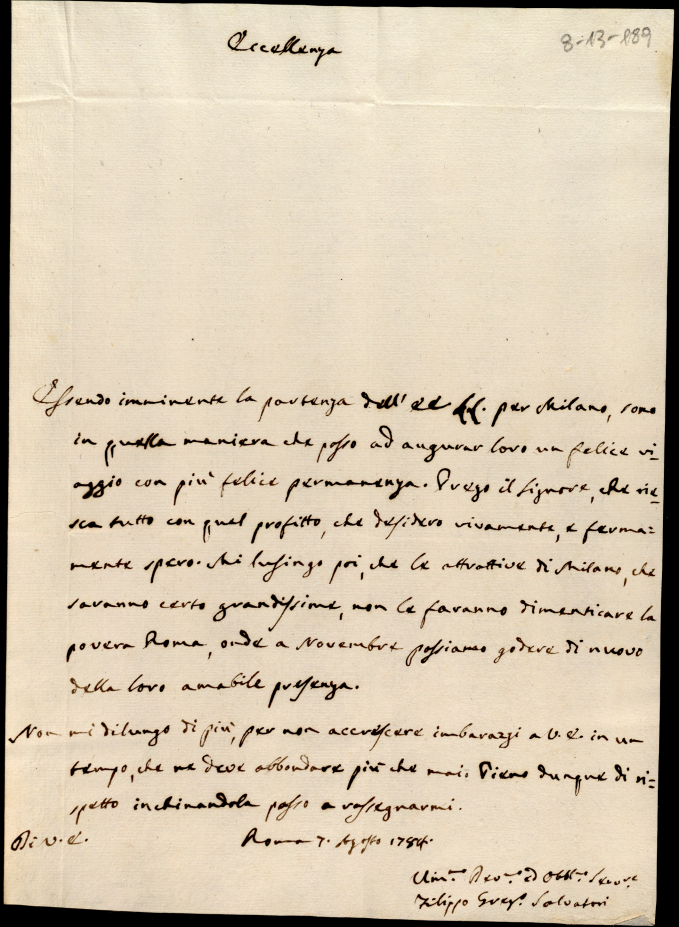 Eccellenza
8-13-189
Essendo imminente la partenza dell' EE LL. per Milano, sono
in quella maniera che posso ad augurar loro un felice vi=
aggio con più felice permanenza. Prego il Signore, che rie=
sca tutto con quel profitto, che desidero vivamente, e ferma=
mente spero. Mi lusingo poi, che le attrattive di Milano, che
saranno certo grandissime, non le faranno dimenticare la
povera Roma, onde a Novembre possiamo godere di nuovo
della loro amabile presenza.
Non mi dilungo di più, per non accrescere imbarazzi a V. E. in un
tempo, che ne deve abbondare più che mai. Pieno dunque di ri=
spetto inchinandola passo a rassegnarmi.
Di V. E.
Roma 7. Agosto 1784.
Um.º Dev.º ed Obbl.º Serv.e
Filippo Greg.º Salvatori